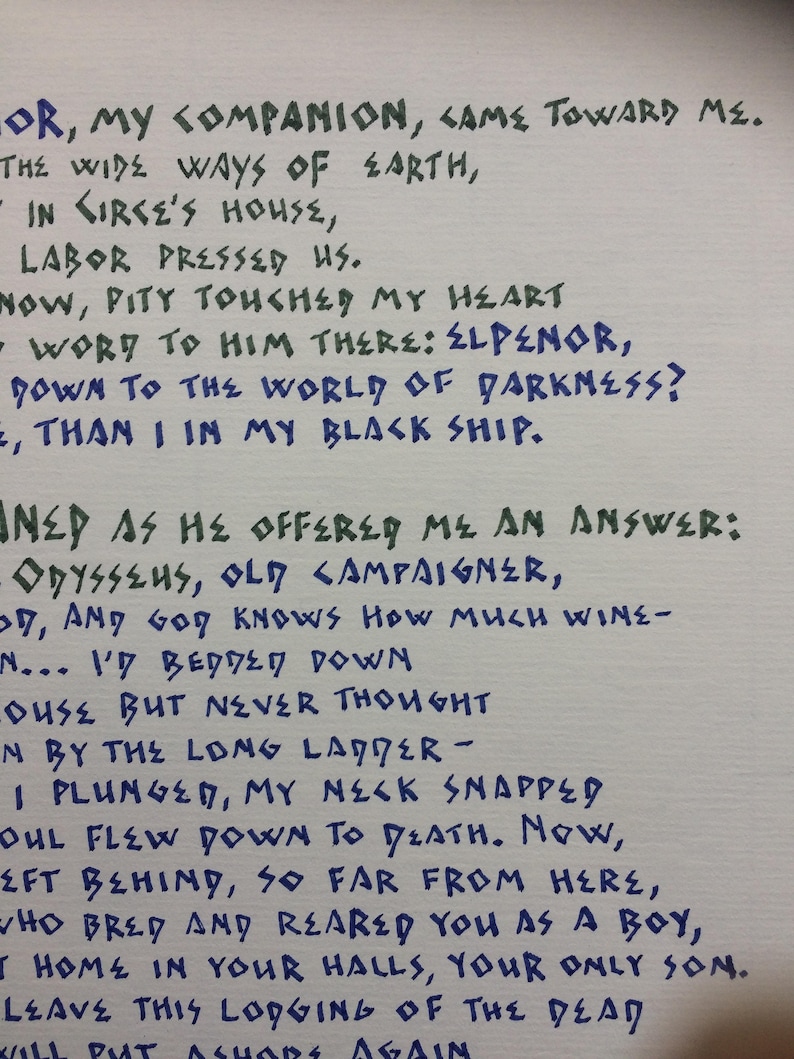 OR, MY COMPANION, CAME TOWARD ME.
THE WIDE WAYS OF EARTH,
IN CIRCE'S HOUSE,
LABOR PRESSED US.
NOW, PITY TOUCHED MY HEART
WORD TO HIM THERE: ELPENOR,
DOWN TO THE WORLD OF DARKNESS?
E, THAN I IN MY BLACK SHIP.
NED AS HE OFFERED ME AN ANSWER:
ODYSSEUS, OLD CAMPAIGNER,
OD, AND GOD KNOWS HOW MUCH WINE-
N... I'D BEDDED DOWN
OUSE BUT NEVER THOUGHT
N BY THE LONG LADDER-
I PLUNGED, MY NECK SNAPPED
OUL FLEW DOWN TO DEATH. NOW,
EFT BEHIND, SO FAR FROM HERE,
WHO BRED AND REARED YOU AS A BOY,
T HOME IN YOUR HALLS, YOUR ONLY SON.
LEAVE THIS LODGING OF THE DEAD
WILL PUT ASHORE AGAIN